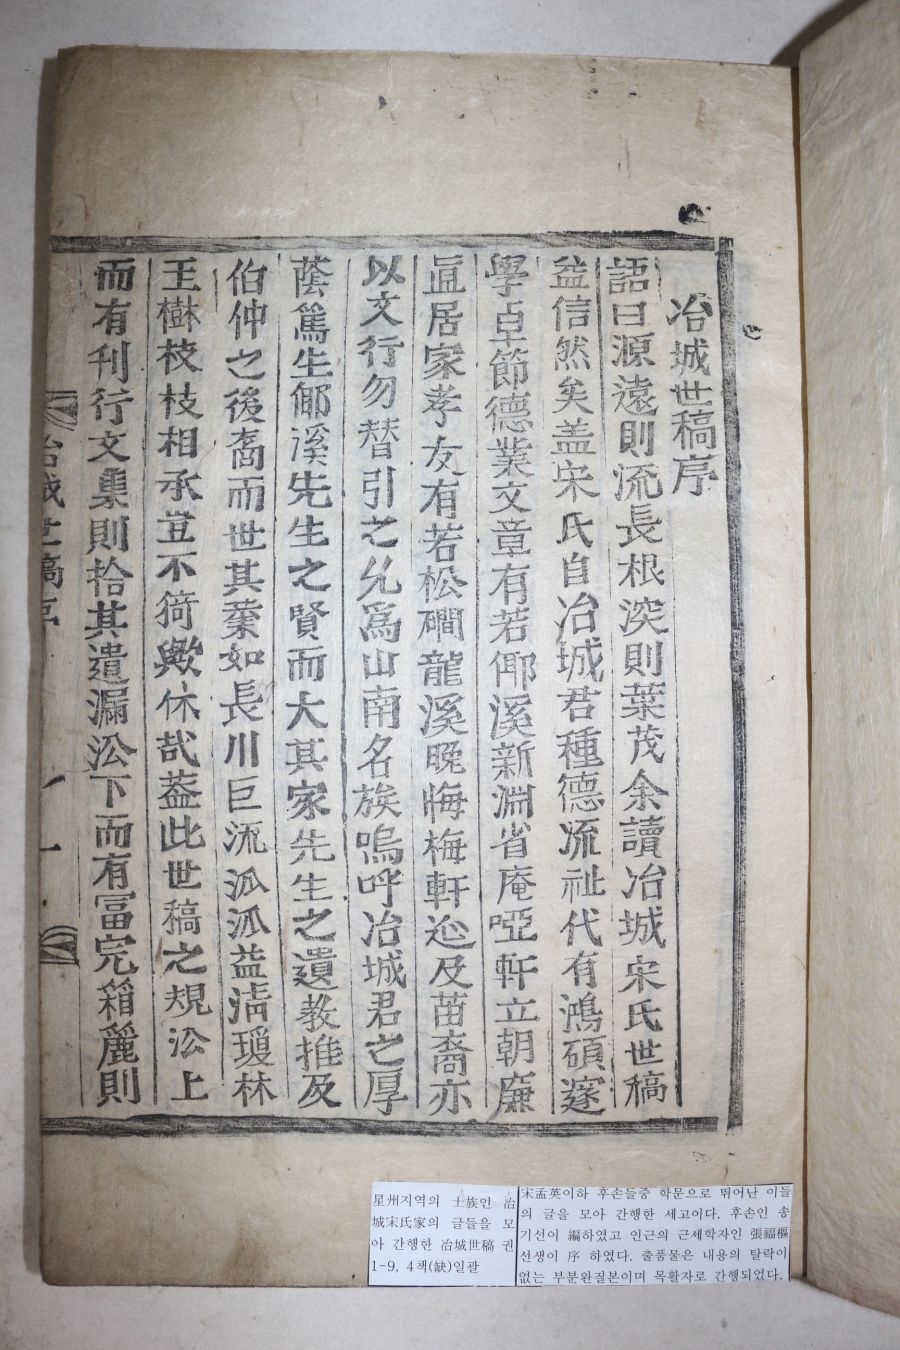 冶城世稿序
語曰源遠則流長根深則葉茂余讀冶城宋氏世稿
益信然矣盖宋氏自冶城君種德流祉代有鴻碩邃
學卓節德業文章有若倻溪新淵省庵啞軒立朝廉
直居家孝友有若松磵龍溪晚悔梅軒迨及苗裔亦
以文行勿替引之允爲山南名族嗚呼冶城君之厚
蔭篤生倻溪先生之賢而大其家先生之遺教推及
伯仲之後裔而世其業如長川巨流派派益淸瓊林
玉樹枝枝相承豈不猗歟休哉蓋此世稿之規公上
而有刊行文集則拾其遺漏公下而有冨完箱麗則
冶城世稿序
一
星州지역의 土族인 冶
城宋氏家의 글들을 모
아 간행한 冶城世稿 권
1-9. 4책(缺)일괄
宋孟英이하 후손들중 학문으로 뛰어난 이들
의 글을 모아 간행한 세고이다. 후손인 송
기선이 編하였고 인근의 근세학자인 張福樞
선생이 序 하였다. 출품물은 내용의 탈락이
없는 부분완질본이며 목활자로 간행되었다.